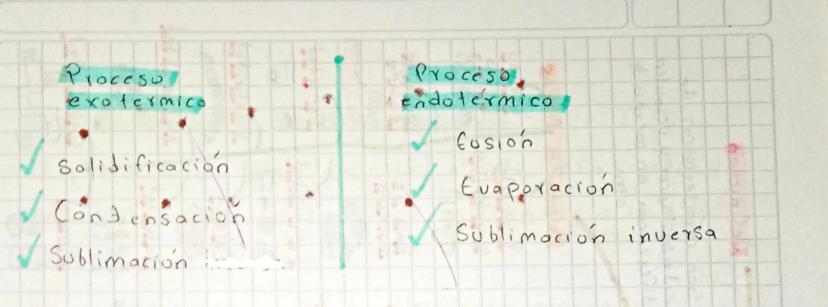 Proceso
exotermico
Solidificación
Condensación
Sublimación
Proceso
endotérmico
Fusión
Evaporación
Sublimación inversa